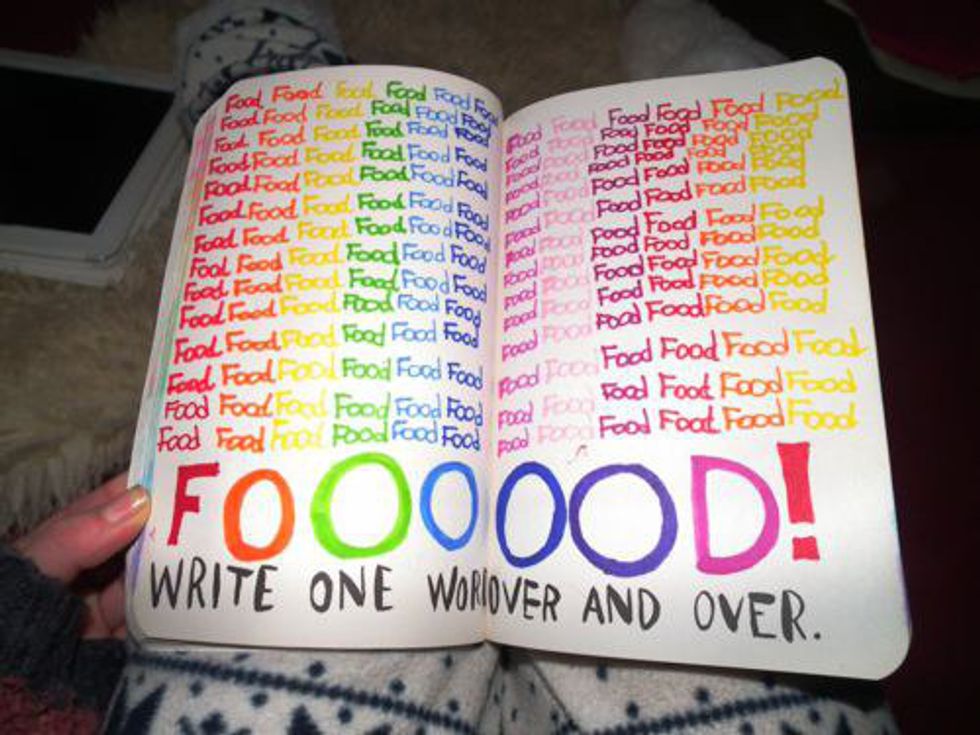 Food Food Food Food Food Food
Food Food Food Food Food Food
Food Food Food Food Food Food
Food Food Food Food Food Food
Food Food Food Food Food Food
Food Food Food Food Food Food
Food Food Food Food Food Food
Food Food Food Food Food Food
Food Food Food Food Food Food
Food Food Food Food Food Food
Food Food Food Food Food Food
Food Food Food Food Food Food
Food Food Food Food Food Food
Food Food Food Food Food Food
Food Food Food Food Food Food
Food Food Food Food Food Food
Food Food Food Food Food Food
Food Food Food Food Food Food
Food Food Food Food Food Food
Food Food Food Food Food Food
Food Food Food Food Food Food
Food Food Food Food Food Food
Food Food Food Food Food Food
Food Food Food Food Food Food
Food Food Food Food Food Food
Food Food Food Food Food Food
Food Food Food Food Food Food
FOOOOOD!
WRITE ONE WORD OVER AND OVER.